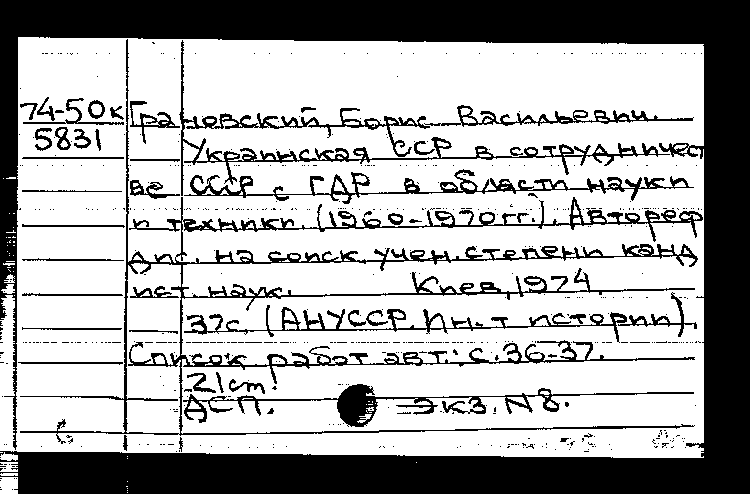 74-50к Грановский, Борис Васильевич.
5831
Украинская ССР в сотрудничест
ве СССР с ГДР в области науки
и техники. (1960-1970 гг.). Автореф
дис. на соиск. учен. степени канд
ист. наук. Киев, 1974.
37с. (АН УССР. Ин-т истории).
Список работ авт.: с. 36-37.
21cm!
ДСП. Экз. N 8.